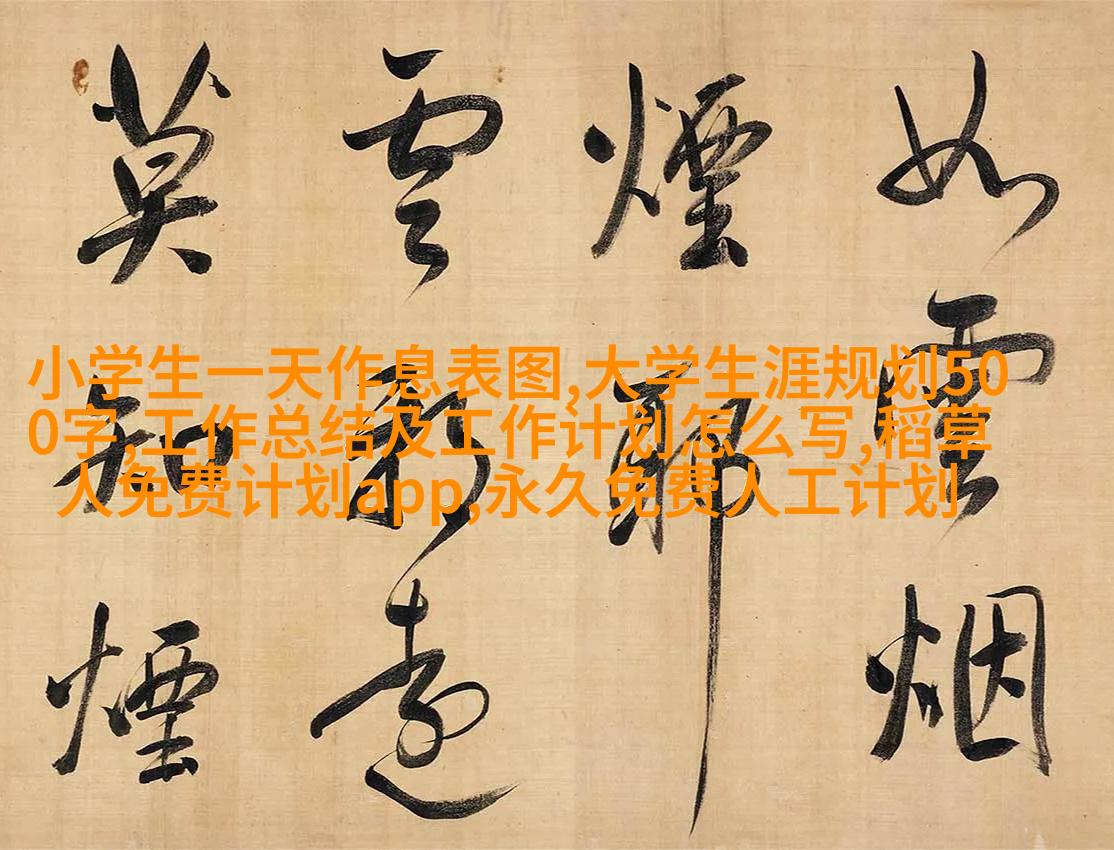 小学生一天作息表图,大学生涯规划50
0字,工作总结及工作计划怎么写,稻草
人免费计划app,永久免费人工计划
如雲烟
煙耶
遠
莫知煙